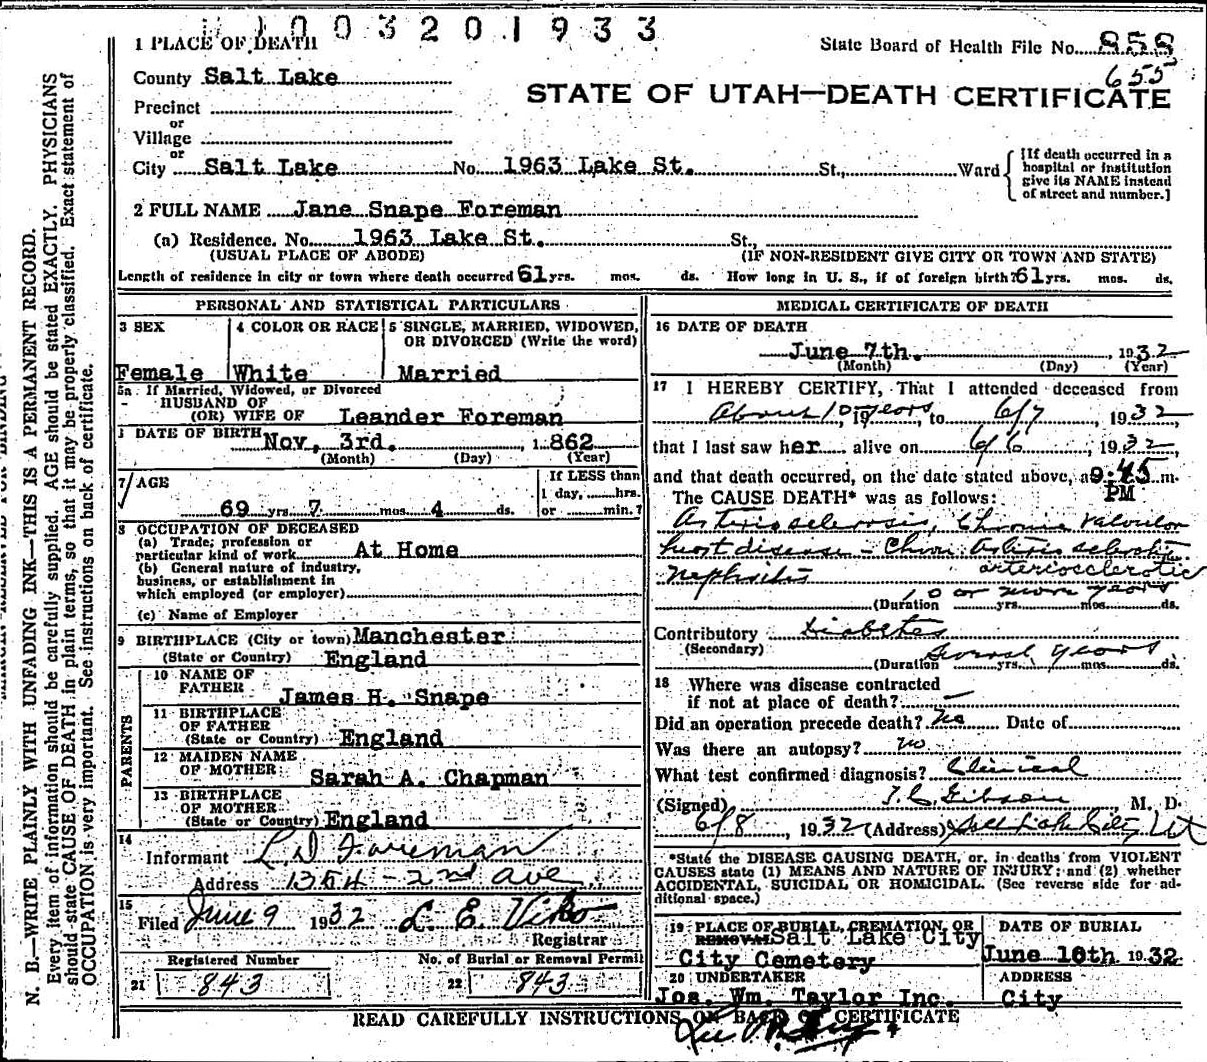 003201933
1 PLACE OF DEATH
State Board of Health File No. 858
655
County Salt Lake
STATE OF UTAH—DEATH CERTIFICATE
Precinct
or
Village
or
City Salt Lake No. 1963 Lake St. St., Ward
[If death occurred in a hospital or institution give its NAME instead of street and number.]
2 FULL NAME Jane Snape Foreman
(a) Residence. No. 1963 Lake St. St.,
(USUAL PLACE OF ABODE) (IF NON-RESIDENT GIVE CITY OR TOWN AND STATE)
Length of residence in city or town where death occurred 61 yrs. mos. ds. How long in U. S., if of foreign birth? 61 yrs. mos. ds.
PERSONAL AND STATISTICAL PARTICULARS
3 SEX
Female
4 COLOR OR RACE
White
5 SINGLE, MARRIED, WIDOWED, OR DIVORCED (Write the word)
Married
5a If Married, Widowed, or Divorced
HUSBAND OF
(OR) WIFE OF Leander Foreman
DATE OF BIRTH Nov, 3rd. 1862
(Month) (Day) (Year)
7 AGE
69 yrs. 7 mos. 4 ds.
If LESS than
1 day, hrs.
or min.?
8 OCCUPATION OF DECEASED
(a) Trade, profession or
particular kind of work At Home
(b) General nature of industry,
business, or establishment in
which employed (or employer)
(c) Name of Employer
9 BIRTHPLACE (City or town) Manchester
(State or Country) England
PARENTS
10 NAME OF
FATHER James H. Snape
11 BIRTHPLACE
OF FATHER
(State or Country) England
12 MAIDEN NAME
OF MOTHER Sarah A. Chapman
13 BIRTHPLACE
OF MOTHER
(State or Country) England
14
Informant L D Foreman
Address 1354 - 2nd Ave
15
Filed June 9 1932 L. E. Viko
Registrar
Registered Number No. of Burial or Removal Permit
21 843 22 843
MEDICAL CERTIFICATE OF DEATH
16 DATE OF DEATH
June 7th. , 1932
(Month) (Day) (Year)
17 I HEREBY CERTIFY, That I attended deceased from
About 10 years, 19 , to 6/7 1932
that I last saw her alive on 6/6 , 1932,
and that death occurred, on the date stated above, at 9:45 m.
PM
The CAUSE DEATH* was as follows:
Arteriosclerosis, Chronic Valvular
heart disease - Chron. Arteriosclerotic
nephritis arteriosclerotic
10 or more years
(Duration yrs. mos. ds.
Contributory Diabetes
(Secondary)
Several years
(Duration yrs. mos. ds.
18 Where was disease contracted
if not at place of death? —
Did an operation precede death? No Date of
Was there an autopsy? no
What test confirmed diagnosis? Clinical
(Signed) J. C. Gibson, M. D.
6/8, 1932 (Address) Salt Lake City Ut
*State the DISEASE CAUSING DEATH, or, in deaths from VIOLENT
CAUSES state (1) MEANS AND NATURE OF INJURY; and (2) whether
ACCIDENTAL, SUICIDAL OR HOMICIDAL. (See reverse side for ad-
ditional space.)
19 PLACE OF BURIAL, CREMATION, OR
REMOVAL Salt Lake City
City Cemetery
DATE OF BURIAL
June 10th 1932
20 UNDERTAKER
Jos. Wm. Taylor Inc.
ADDRESS
City
READ CAREFULLY INSTRUCTIONS ON BACK OF CERTIFICATE
N. B.—WRITE PLAINLY WITH UNFADING INK—THIS IS A PERMANENT RECORD.
Every item of information should be carefully supplied. AGE should be stated EXACTLY. PHYSICIANS
should state CAUSE OF DEATH in plain terms, so that it may be properly classified. Exact statement of
OCCUPATION is very important. See instructions on back of certificate.